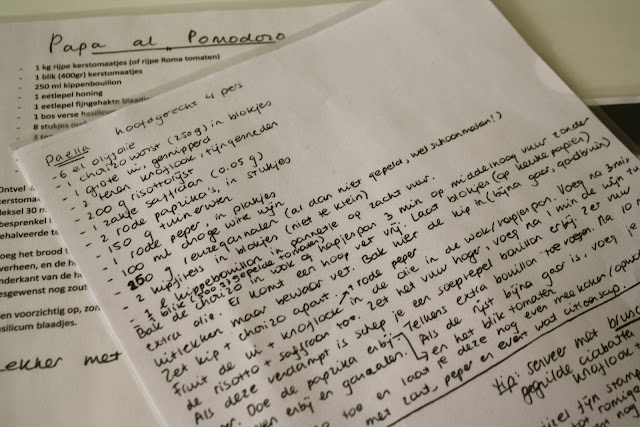 Papa al Pomodoro
1 kg rijpe kerstomaatjes (of rijpe Roma tomaten)
1 blik (400gr) kerstomaatjes
250 ml kippenbouillon
1 eetlepel honing
1 eetlepel fijngehakte blaadj
1 bos verse basilicum
8 stukjes ou
Ontvel
deksel 30 m
besprenkel
gehalveerde t
eg het brood
verheen, en de h
nderkant van de h
gesgewenst nog zout
en voorzichtig op, zon
asilicum blaadjes.
Lekker met
Paella hoofdgerecht 4 pers
- 6 el olijfolie
- 1 chorizo worst (250 g) in blokjes
- 1 grote ui, gesnipperd
- 2 tenen knoflook, fijngesneden
- 200 g risottorijst
- 1 zakje saffraan (0.05 g)
- 2 rode paprika's, in stukjes
- 150 g tuinerwten
- 1 rode peper, in plakjes
- 100 ml droge witte wijn
- 250 g reuzegarnalen (al dan niet gepeld, wel schoonmaken!)
- 2 kipfilets in blokjes (niet te klein)
- 1 l kippebouillon in pannetje op zacht vuur.
- 1 blik (400 g) gepelde tomaten
Bak de chorizo in wok of hapjespan 3 min op middelhoog vuur zonder
extra olie. Er komt een hoop vet vrij. Laat blokjes (op keukenpapier)
uitlekken maar bewaar vet. Bak hier de kip in (bijna gaar, goudbruin)
Zet kip + chorizo apart. rode peper
Fruit de ui + knoflook in de olie in de wok/hapjespan. Voeg na 3 min
de risotto + saffraan toe. Zet het vuur hoger, voeg na 1 min de wijn
Als deze verdampt is schep je een soeplepel bouillon erbij, zet vuur
Doe de paprika erbij Telkens extra bouillon toevoegen. Na 10
erbij en garnalen. Als de rijst bijna gaar is, voeg je
en het blik tomaten
toe en laat je deze nog even meekoken
met zout, peper en evt wat citroensap.
tip: serveer met
gegrilde ciabatta
knoflook
fijn